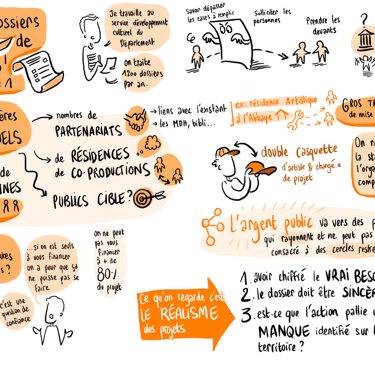 OSSIERS
de
Je travaille au
service développement
culturel du
Département
On traite
1200 dossiers
par an.
Savoir dépasser
les cases à remplir
Solliciter les
personnes
Prendre les
devants
?
nombres de
PARTENARIATS
de RÉSIDENCES
de CO-PRODUCTIONS
PUBLICS CIBLE?
→ liens avec l'existant
→ les MDH, bibli...
ex: résidence Artistique
à l'Abbaye
GROS
de mise
double casquette
d'artiste & chargé.e
de projet
L'argent public va vers des
qui rayonnent et ne peut pas
consacré à des cercles restre
s ?
... si on est seuls
à vous financer
on a peur que ça
ne puisse pas se
faire
on ne peut
pas vous
financer
à + de
80%
du projet
c'est une
question de
confiance
Ce qu'on regarde c'est
LE RÉALISME
des projets
1. avoir chiffré le VRAI BESO
2. le dossier doit être SINCÈR
3. est-ce que l'action pallie u
MANQUE identifié sur l
territoire ?